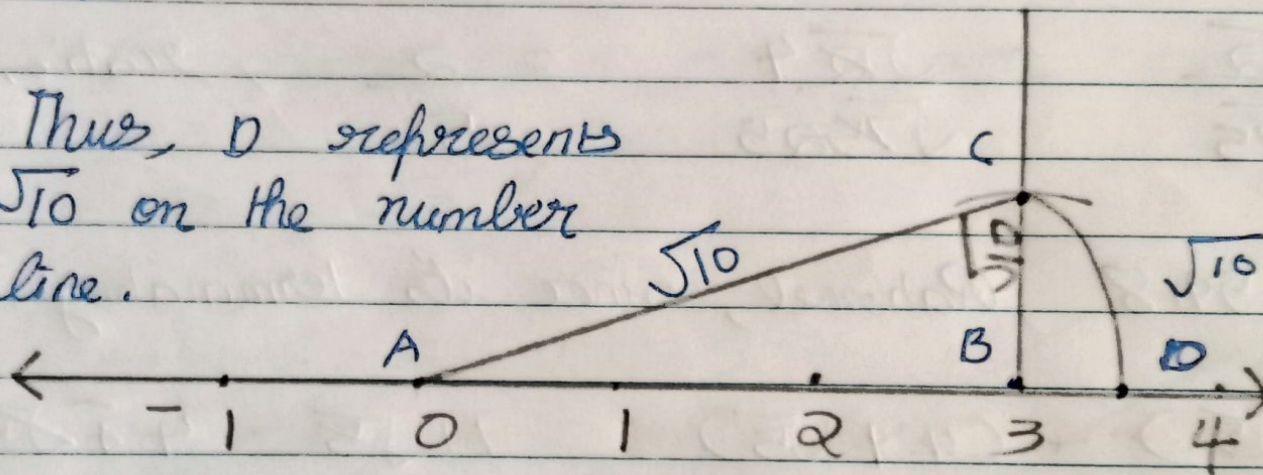 Thus, D represents
√10 on the number
line.
C
√10
√10
√10
A
B
D
-1 0 1 2 3 4